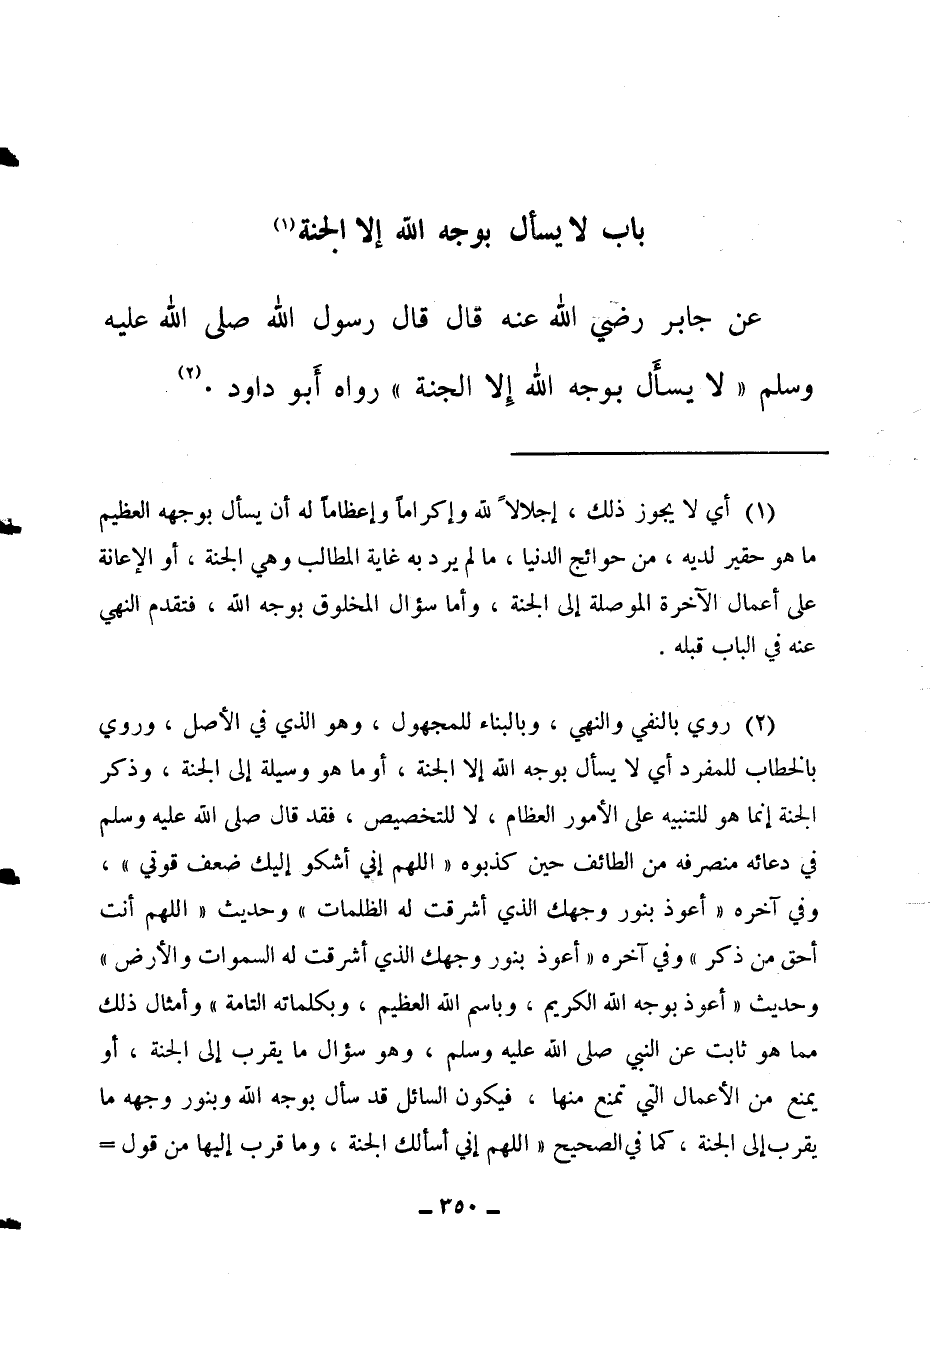 باب لا يسأل بوجه الله إلا الجنة(١)
عن جابر رضي الله عنه قال قال رسول الله صلى الله عليه
وسلم « لا يسأَل بوجه الله إِلا الجنة » رواه أَبو داود .(٢)
(١) أي لا يجوز ذلك ، إجلالاً لله وإكراماً وإعظاماً له أن يسأل بوجهه العظيم
ما هو حقير لديه ، من حوائج الدنيا ، ما لم يرد به غاية المطالب وهي الجنة ، أو الإعانة
على أعمال الآخرة الموصلة إلى الجنة ، وأما سؤال المخلوق بوجه الله ، فتقدم النهي
عنه في الباب قبله .
(٢) روي بالنفي والنهي ، وبالبناء للمجهول ، وهو الذي في الأصل ، وروي
بالخطاب للمفرد أي لا يسأل بوجه الله إلا الجنة ، أو ما هو وسيلة إلى الجنة ، وذكر
الجنة إنما هو للتنبيه على الأمور العظام ، لا للتخصيص ، فقد قال صلى الله عليه وسلم
في دعائه منصرفه من الطائف حين كذبوه « اللهم إني أشكو إليك ضعف قوتي » ،
وفي آخره « أعوذ بنور وجهك الذي أشرقت له الظلمات » وحديث « اللهم أنت
أحق من ذكر » وفي آخره « أعوذ بنور وجهك الذي أشرقت له السموات والأرض »
وحديث « أعوذ بوجه الله الكريم ، وباسم الله العظيم ، وبكلماته التامة » وأمثال ذلك
مما هو ثابت عن النبي صلى الله عليه وسلم ، وهو سؤال ما يقرب إلى الجنة ، أو
يمنع من الأعمال التي تمنع منها ، فيكون السائل قد سأل بوجه الله وبنور وجهه ما
يقرب إلى الجنة ، كما في الصحيح « اللهم إني أسألك الجنة ، وما قرب إليها من قول =
ـ ٣٥٠ ـ